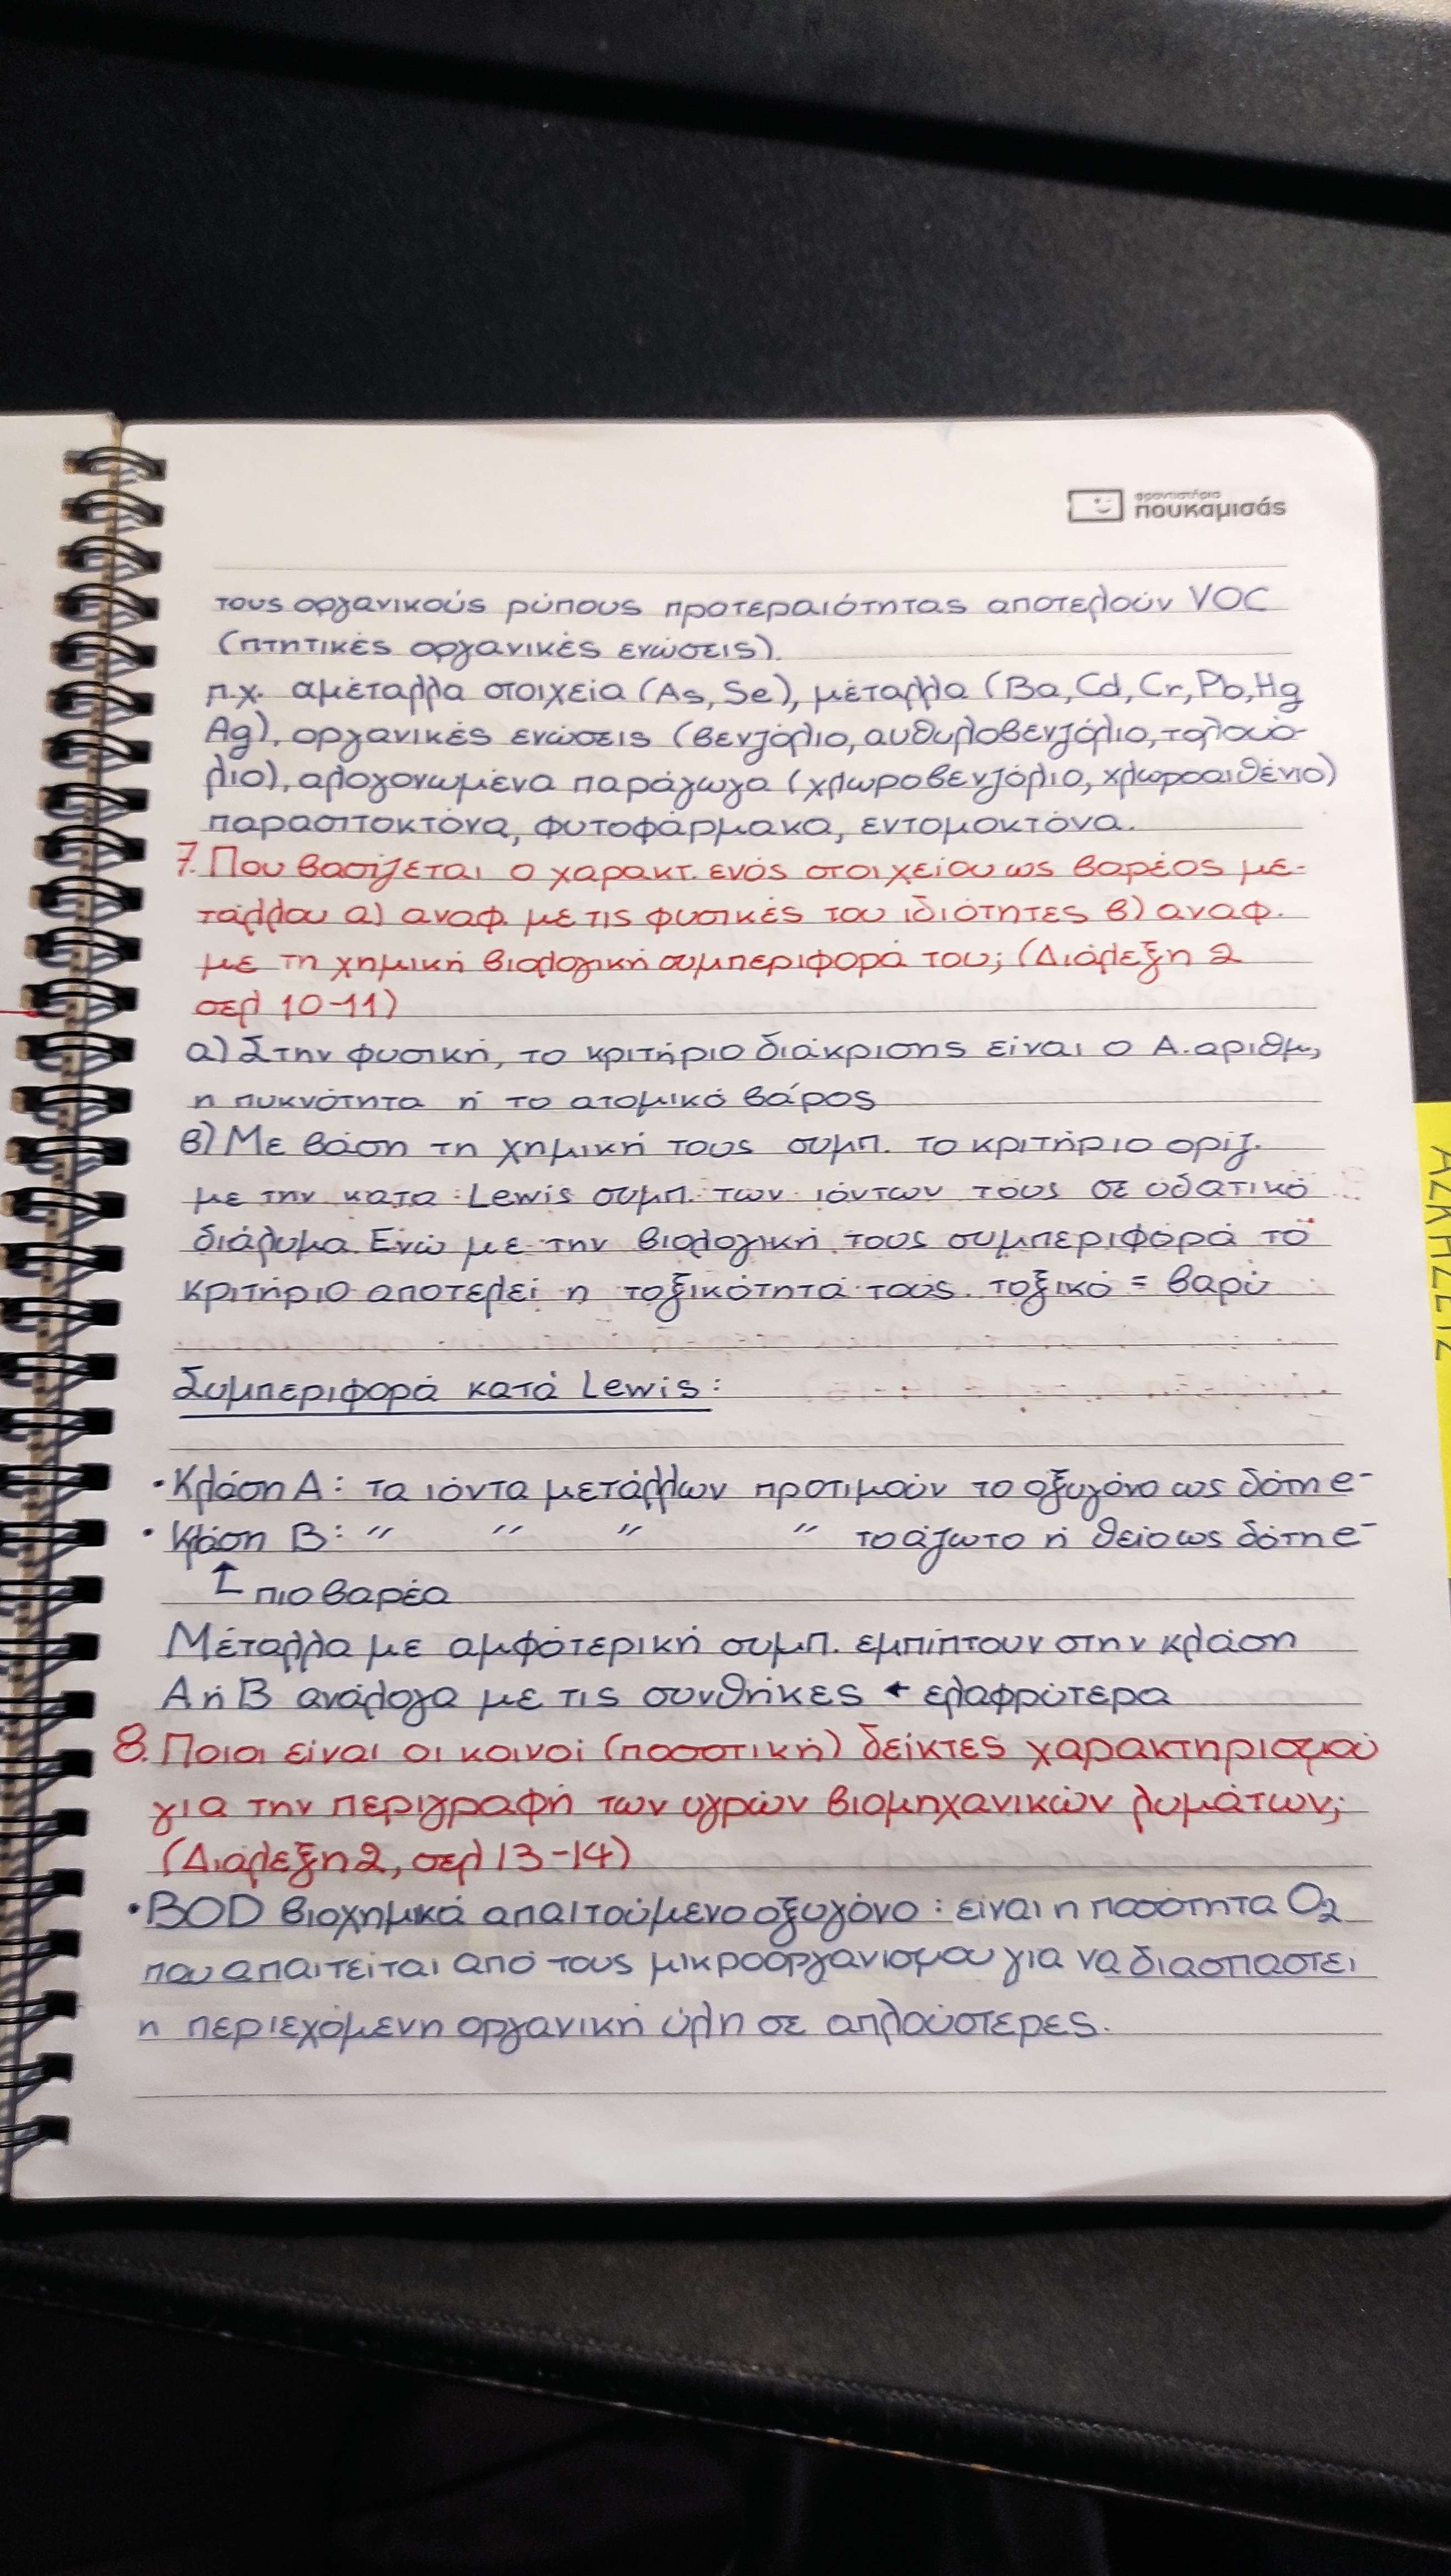 φροντιστήρια
πουκαμισάς
τους οργανικούς ρύπους προτεραιότητας αποτελούν VOC
(πτητικές οργανικές ενώσεις).
π.χ. αμέταλλα στοιχεία (As, Se), μέταλλα (Ba, Cd, Cr, Pb, Hg
Ag), οργανικές ενώσεις (βενζόλιο, αυθυλοβενζόλιο, τολουό-
λιο), αλογονωμένα παράγωγα (χλωροβενζόλιο, χλωροαιθένιο)
παρασιτοκτόνα, φυτοφάρμακα, εντομοκτόνα.
7. Που βασίζεται ο χαρακτ. ενός στοιχείου ως βαρέος με-
τάλλου α) αναφ. με τις φυσικές του ιδιότητες β) αναφ.
με τη χημική βιολογική συμπεριφορά του; (Διάλεξη 2
σελ 10-11)
α) Στην φυσική, το κριτήριο διάκρισης είναι ο Α. αριθμ,
η πυκνότητα ή το ατομικό βάρος
β) Με βάση τη χημική τους συμπ. το κριτήριο οριζ.
με την κατα Lewis συμπ. των ιόντων τους σε υδατικό
διάλυμα. Ενώ με την βιολογική τους συμπεριφορά το
κριτήριο αποτελεί η τοξικότητά τους. τοξικό = βαρύ
Συμπεριφορά κατά Lewis:
• Κλάση Α: τα ιόντα μετάλλων προτιμούν το οξυγόνο ως δότη e-
• Κλάση Β: " " " " το άζωτο ή θείο ως δότη e-
↑ πιο βαρέα
Μέταλλα με αμφοτερική συμπ. εμπίπτουν στην κλάση
Α ή Β ανάλογα με τις συνθήκες ← ελαφρύτερα
8. Ποιοι είναι οι κοινοί (ποσοτική) δείκτες χαρακτηρισμού
για την περιγραφή των υγρών βιομηχανικών λυμάτων;
(Διάλεξη 2, σελ 13-14)
• BOD βιοχημικά απαιτούμενο οξυγόνο: είναι η ποσότητα O2
που απαιτείται από τους μικροοργανισμου για να διασπαστει
η περιεχόμενη οργανική ύλη σε απλούστερες.